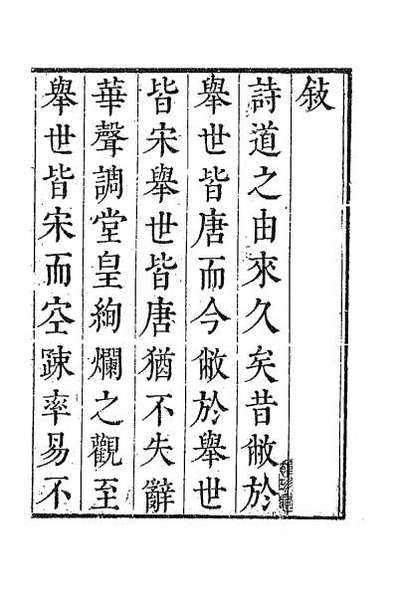 敍
詩道之由來久矣昔敝於
舉世皆唐而今敝於舉世
皆宋舉世皆唐猶不失辭
華聲調堂皇絢爛之觀至
舉世皆宋而空疎率易不